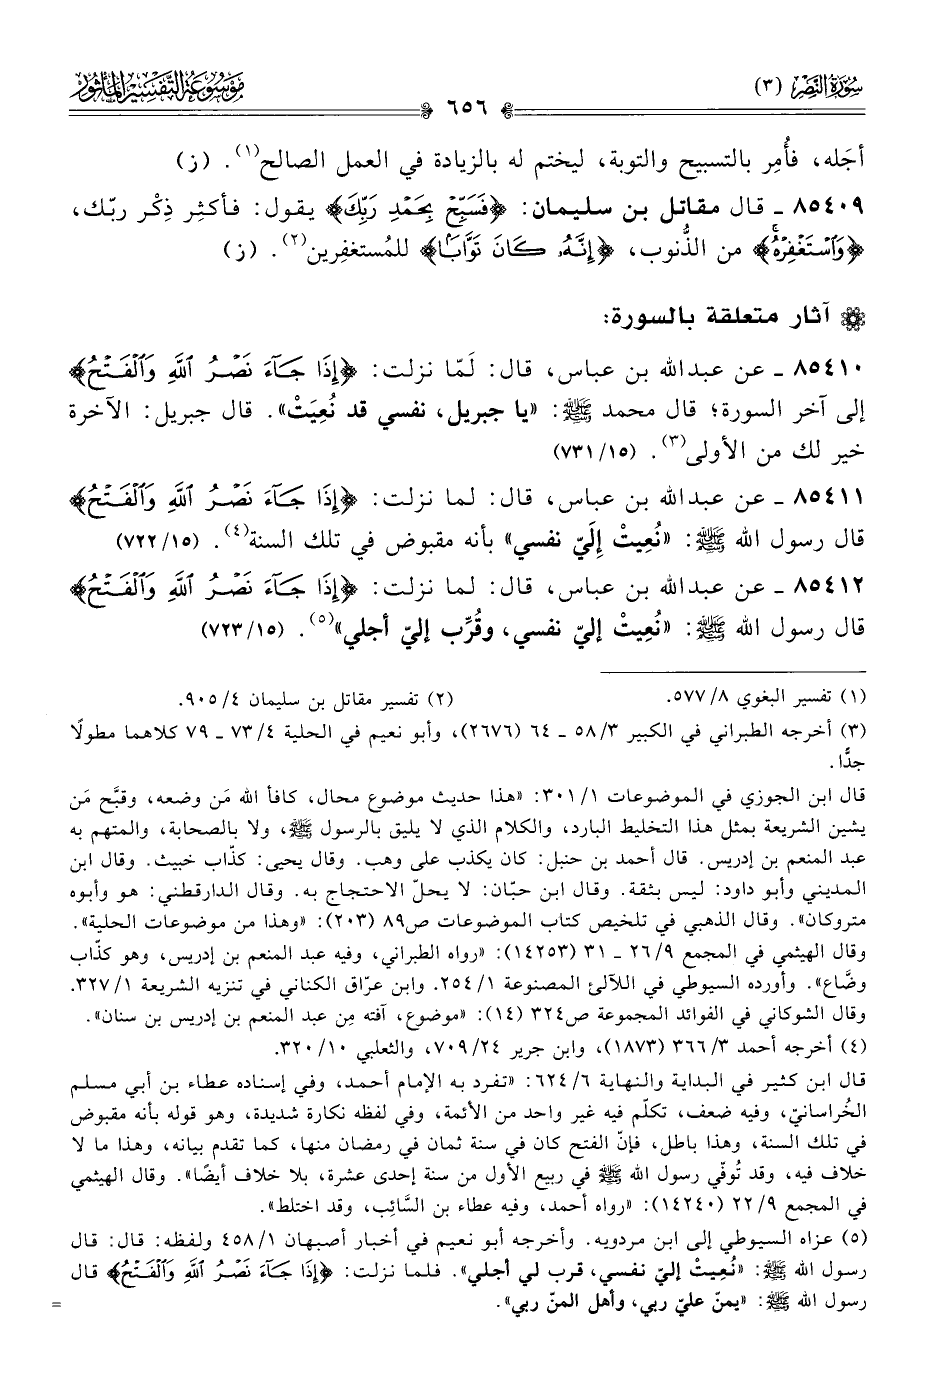 سُورَةُ النَّصْر (٣)
٦٥٦
مَوْسُوعَةُ التَّفْسِيرِ المَأْثُور
أجَله، فأُمِر بالتسبيح والتوبة، ليختم له بالزيادة في العمل الصالح(١). (ز)
٨٥٤٠٩ ـ قال مقاتل بن سليمان: ﴿فَسَبِّحْ بِحَمْدِ رَبِّكَ﴾ يقول: فأكثِر ذِكْر ربّك،
﴿وَاسْتَغْفِرْهُ﴾ من الذُّنوب، ﴿إِنَّهُۥ كَانَ تَوَّابًا﴾ للمُستغفِرين(٢). (ز)
آثار متعلقة بالسورة:
٨٥٤١٠ ـ عن عبدالله بن عباس، قال: لَمّا نزلت: ﴿إِذَا جَآءَ نَصْرُ ٱللَّهِ وَٱلْفَتْحُ﴾
إلى آخر السورة؛ قال محمد ﷺ: «يا جبريل، نفسي قد نُعِيَتْ». قال جبريل: الآخرة
خير لك من الأولى(٣). (١٥/ ٧٣١)
٨٥٤١١ ـ عن عبدالله بن عباس، قال: لما نزلت: ﴿إِذَا جَآءَ نَصْرُ ٱللَّهِ وَٱلْفَتْحُ﴾
قال رسول الله ﷺ: «نُعِيتْ إِلَيّ نفسي» بأنه مقبوض في تلك السنة(٤). (١٥/ ٧٢٢)
٨٥٤١٢ ـ عن عبدالله بن عباس، قال: لما نزلت: ﴿إِذَا جَآءَ نَصْرُ ٱللَّهِ وَٱلْفَتْحُ﴾
قال رسول الله ﷺ: «نُعِيتْ إليّ نفسي، وقُرِّب إليّ أجلي»(٥). (١٥/ ٧٢٣)
(١) تفسير البغوي ٨/ ٥٧٧. (٢) تفسير مقاتل بن سليمان ٤/ ٩٠٥.
(٣) أخرجه الطبراني في الكبير ٣/ ٥٨ ـ ٦٤ (٢٦٧٦)، وأبو نعيم في الحلية ٤/ ٧٣ ـ ٧٩ كلاهما مطولًا
جدًّا.
قال ابن الجوزي في الموضوعات ١/ ٣٠١: «هذا حديث موضوع محال، كافأ الله مَن وضعه، وقبَّح مَن
يشين الشريعة بمثل هذا التخليط البارد، والكلام الذي لا يليق بالرسول ﷺ، ولا بالصحابة، والمتهم به
عبد المنعم بن إدريس. قال أحمد بن حنبل: كان يكذب على وهب. وقال يحيى: كذّاب خبيث. وقال ابن
المديني وأبو داود: ليس بثقة. وقال ابن حبّان: لا يحلّ الاحتجاج به. وقال الدارقطني: هو وأبوه
متروكان». وقال الذهبي في تلخيص كتاب الموضوعات ص٨٩ (٢٠٣): «وهذا من موضوعات الحلية».
وقال الهيثمي في المجمع ٩/ ٢٦ ـ ٣١ (١٤٢٥٣): «رواه الطبراني، وفيه عبد المنعم بن إدريس، وهو كذاب
وضَّاع». وأورده السيوطي في اللآلئ المصنوعة ١/ ٢٥٤. وابن عرّاق الكناني في تنزيه الشريعة ١/ ٣٢٧.
وقال الشوكاني في الفوائد المجموعة ص٣٢٤ (١٤): «موضوع، آفته مِن عبد المنعم بن إدريس بن سنان».
(٤) أخرجه أحمد ٣/ ٣٦٦ (١٨٧٣)، وابن جرير ٢٤/ ٧٠٩، والثعلبي ١٠/ ٣٢٠.
قال ابن كثير في البداية والنهاية ٦/ ٦٢٤: «تفرد به الإمام أحمد، وفي إسناده عطاء بن أبي مسلم
الخُراسانيّ، وفيه ضعف، تكلّم فيه غير واحد من الأئمة، وفي لفظه نكارة شديدة، وهو قوله بأنه مقبوض
في تلك السنة، وهذا باطل، فإنّ الفتح كان في سنة ثمان في رمضان منها، كما تقدم بيانه، وهذا ما لا
خلاف فيه، وقد تُوفّي رسول الله ﷺ في ربيع الأول من سنة إحدى عشرة، بلا خلاف أيضًا». وقال الهيثمي
في المجمع ٩/ ٢٢ (١٤٢٤٠): «رواه أحمد، وفيه عطاء بن السَّائِب، وقد اختلط».
(٥) عزاه السيوطي إلى ابن مردويه. وأخرجه أبو نعيم في أخبار أصبهان ١/ ٤٥٨ ولفظه: قال: قال
رسول الله ﷺ: «نُعِيتْ إليّ نفسي، قرب لي أجلي». فلما نزلت: ﴿إِذَا جَآءَ نَصْرُ ٱللَّهِ وَٱلْفَتْحُ﴾ قال
رسول الله ﷺ: «يمنّ عليّ ربي، وأهل المنّ ربي».
=